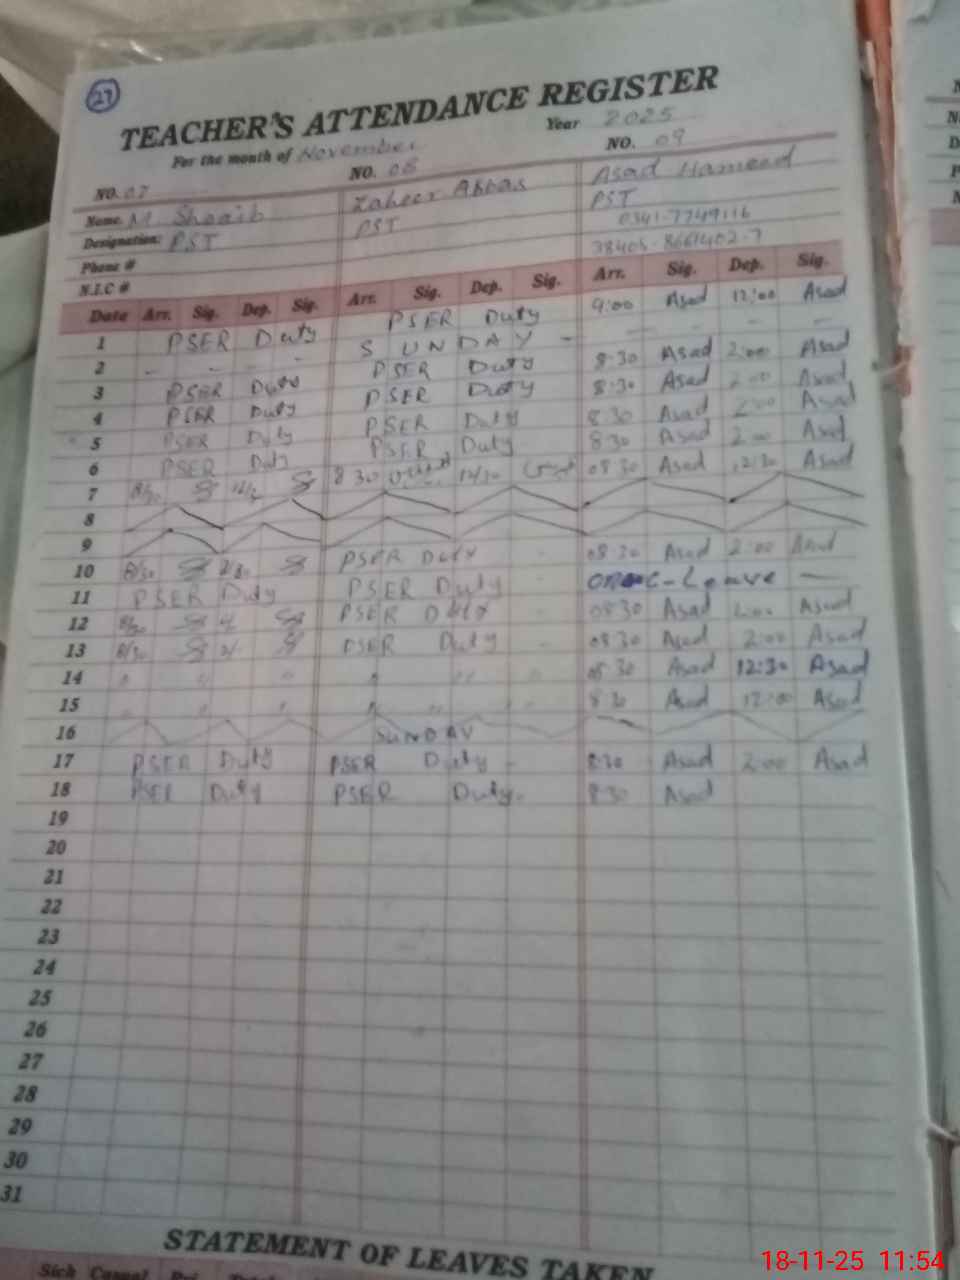 27
TEACHER'S ATTENDANCE REGISTER
For the month of November Year 2025
NO. 07 NO. 08 NO. 09
Name. M. Shoaib Zaheer Abbas Asad Hameed
Designation: PST PST PST
Phone # 0341-7749116
N.I.C # 38405-8661402-7
Date Arr. Sig. Dep. Sig. Arr. Sig. Dep. Sig. Arr. Sig. Dep. Sig.
1 PSER Duty PSER Duty 9:00 Asad 12:00 Asad
2 - - - - S UNDAY - - - - -
3 PSER Duty PSER Duty 8:30 Asad 2:00 Asad
4 PSER Duty PSER Duty 8:30 Asad 2:00 Asad
5 PSER Duty PSER Duty 8:30 Asad 2:00 Asad
6 PSER Duty PSER Duty 8:30 Asad 2:00 Asad
7 8/30 8 30 08:30 Asad 12:30 Asad
8
9
10 8/30 2/30 PSER Duty - 08:30 Asad 2:00 Asad
11 PSER Duty PSER Duty - on C-Leave —
12 8/30 PSER Duty 08:30 Asad 2:00 Asad
13 8/30 2/ PSER Duty - 08:30 Asad 2:00 Asad
14 " " " " " " 08:30 Asad 12:30 Asad
15 " " " " " " 8:30 Asad 12:00 Asad
16 SUNDAY
17 PSER Duty PSER Duty - 8:30 Asad 2:00 Asad
18 PSER Duty PSER Duty. 8:30 Asad
19
20
21
22
23
24
25
26
27
28
29
30
31
STATEMENT OF LEAVES TAKEN
Sick Casual
18-11-25 11:54